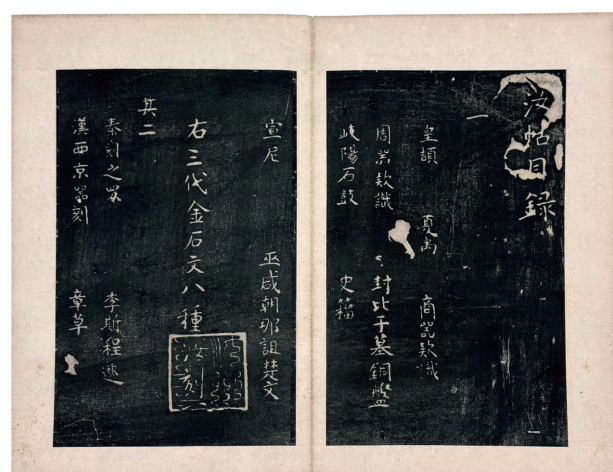 汝帖目錄
一
皇頡 夏禹 商器款識
周器款識 封比干墓銅盤
岐陽石鼓 史籀
宣尼 巫咸朝那詛楚文
右三代金石文八種
其二
秦刻之 李斯程邈
漢西京器刻 章草
一